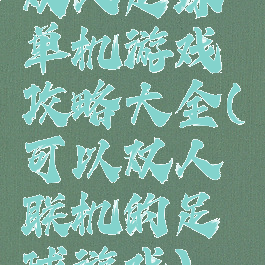 双人足球
单机游戏
攻略大全(
可以双人
联机的足
球游戏)